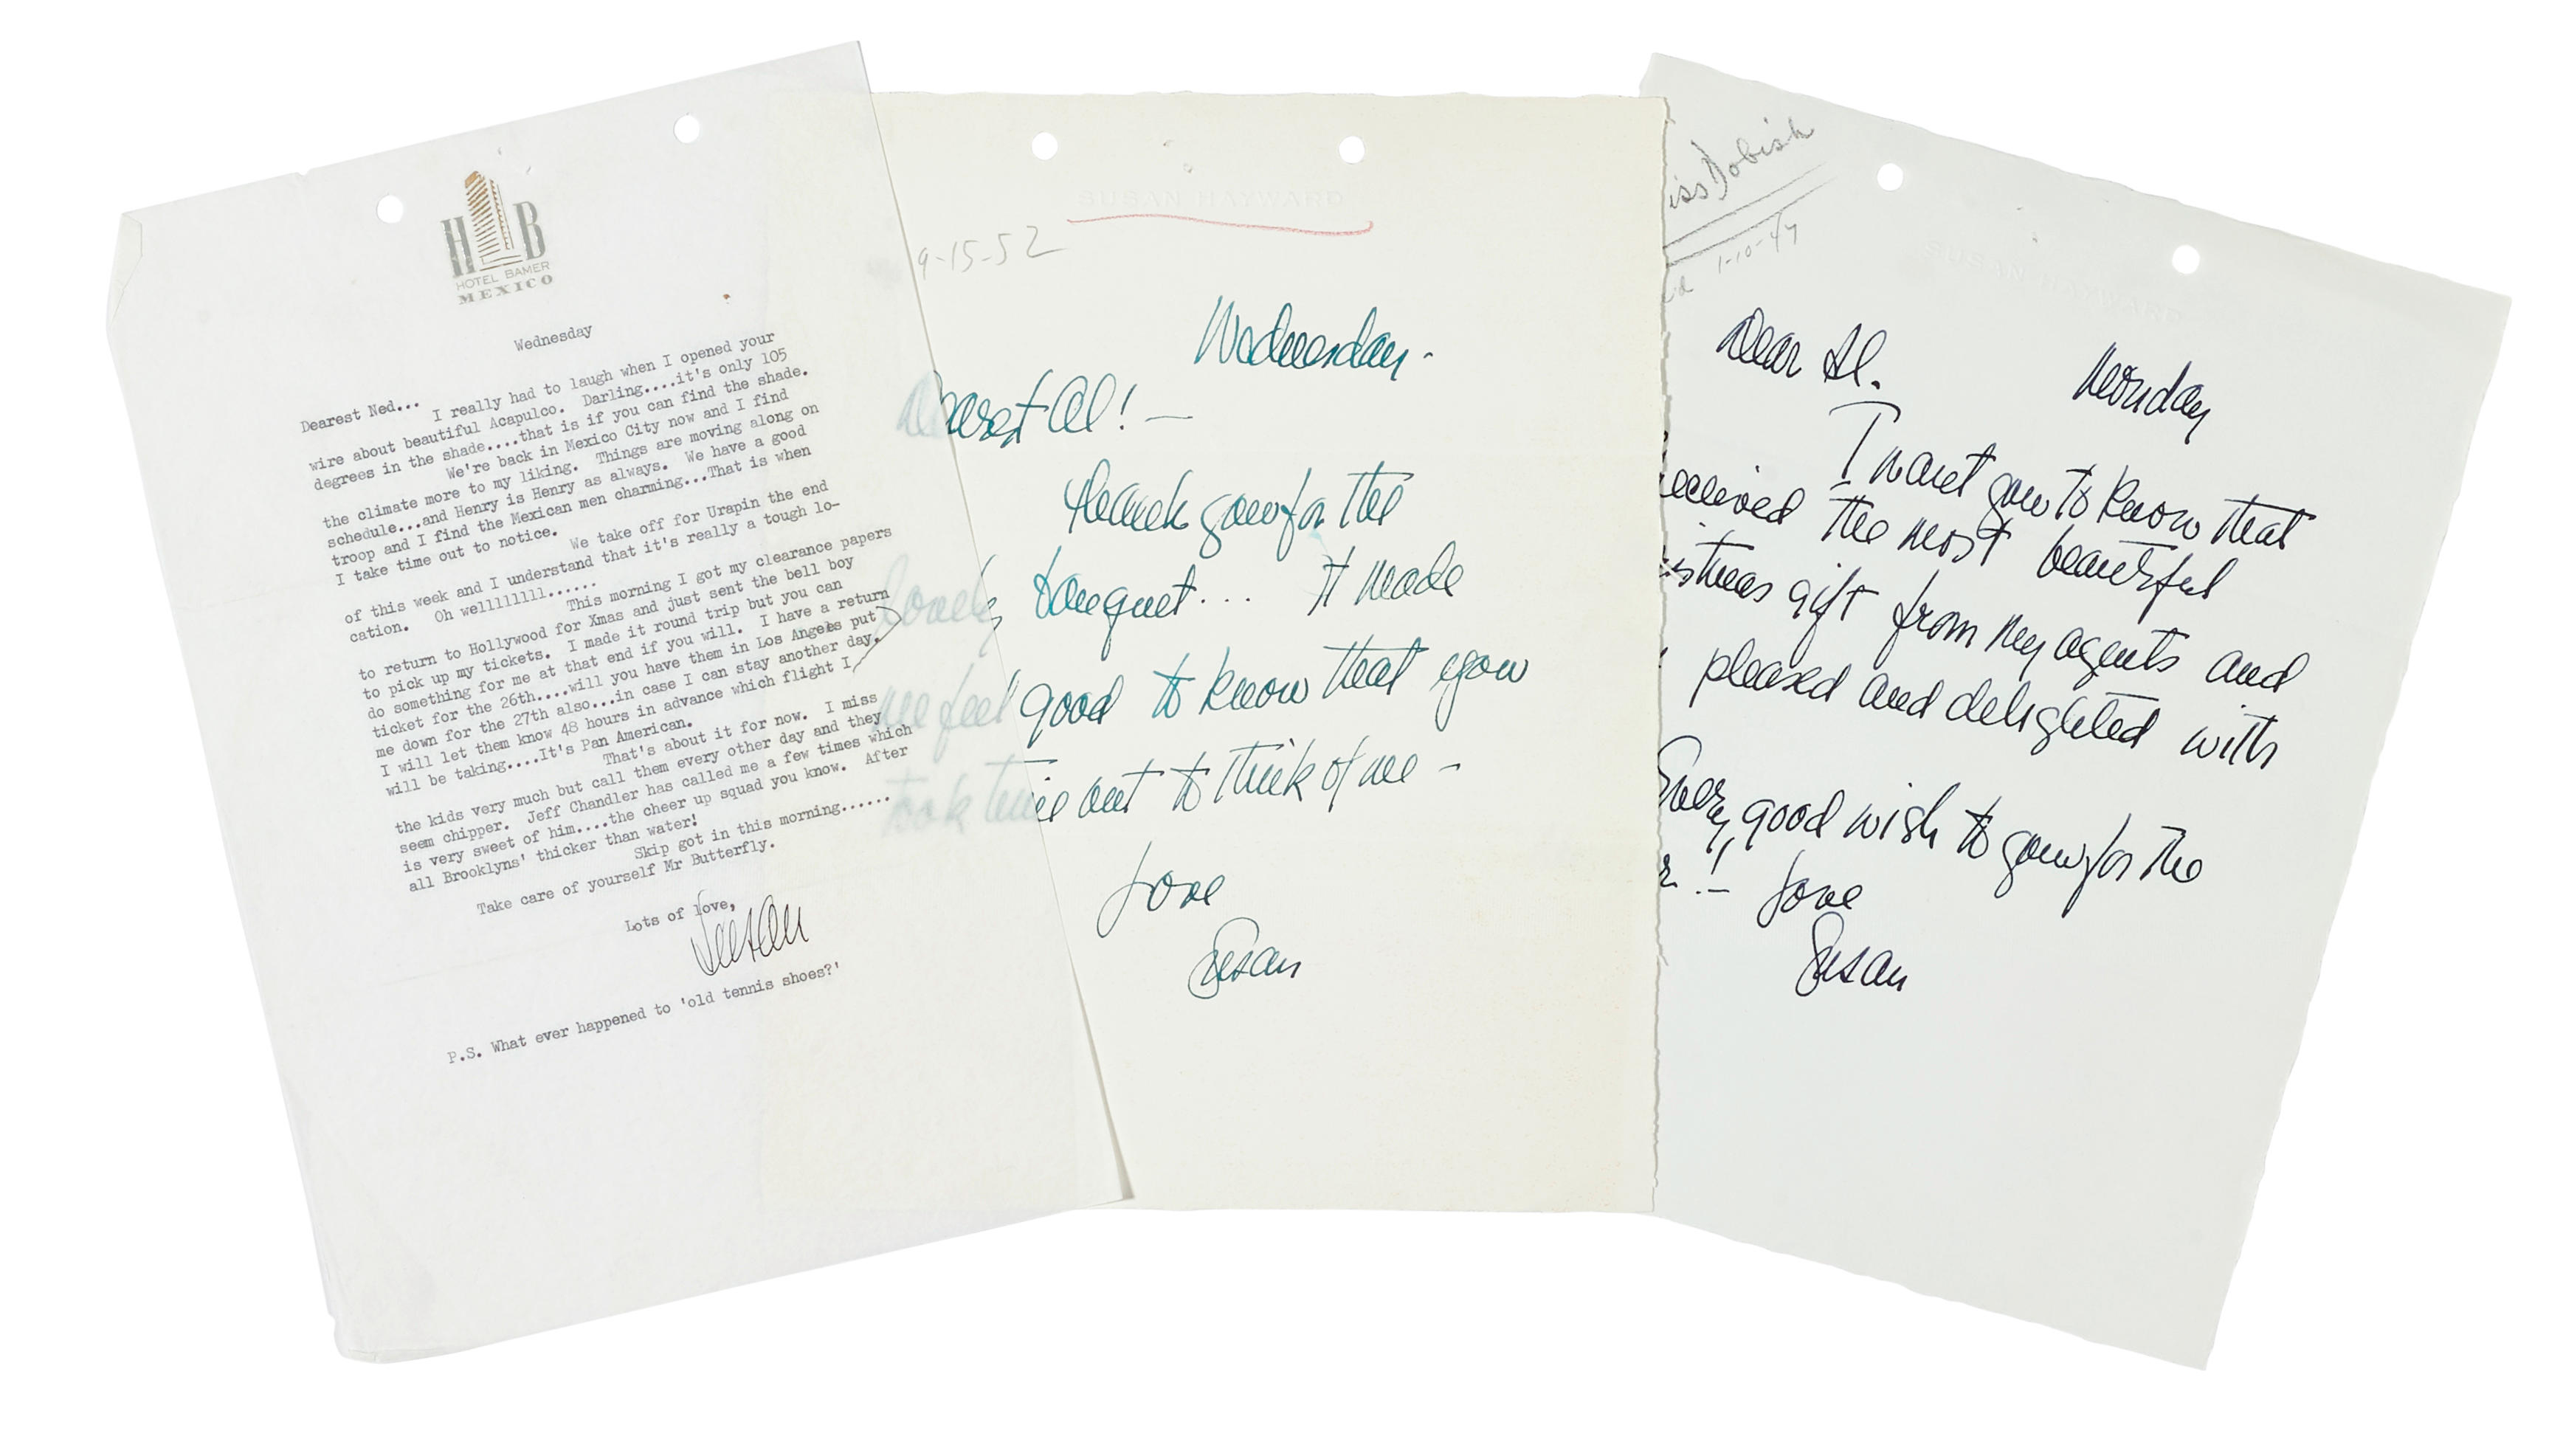 H B
HOTEL BAMER
MEXICO
Wednesday
Dearest Ned...
I really had to laugh when I opened your
wire about beautiful Acapulco. Darling....it's only 105
degrees in the shade....that is if you can find the shade.
We're back in Mexico City now and I find
the climate more to my liking. Things are moving along on
schedule...and Henry is Henry as always. We have a good
troop and I find the Mexican men charming...That is when
I take time out to notice.
We take off for Urapin the end
of this week and I understand that it's really a tough lo-
cation. Oh welllllllll.....
This morning I got my clearance papers
to return to Hollywood for Xmas and just sent the bell boy
to pick up my tickets. I made it round trip but you can
do something for me at that end if you will. I have a return
ticket for the 26th....will you have them in Los Angeles put
me down for the 27th also...in case I can stay another day.
I will let them know 48 hours in advance which flight I
will be taking....It's Pan American.
That's about it for now. I miss
the kids very much but call them every other day and they
seem chipper. Jeff Chandler has called me a few times which
is very sweet of him....the cheer up squad you know. After
all Brooklyns' thicker than water!
Skip got in this morning......
Take care of yourself Mr Butterfly.
Lots of love,
Susan
P.S. What ever happened to 'old tennis shoes?'
SUSAN HAYWARD
9-15-52
Wednesday -
Dearest Al! -
Thank you for the
lovely bouquet... It made
me feel good to know that you
took time out to think of me -
Love
Susan
iss Dobish
1-10-47
SUSAN HAYWARD
Dear Al.
Monday
I want you to know that
received the most beautiful
istmas gift from my agents and
pleased and delighted with
Every good wish to you for the
r! - Love
Susan